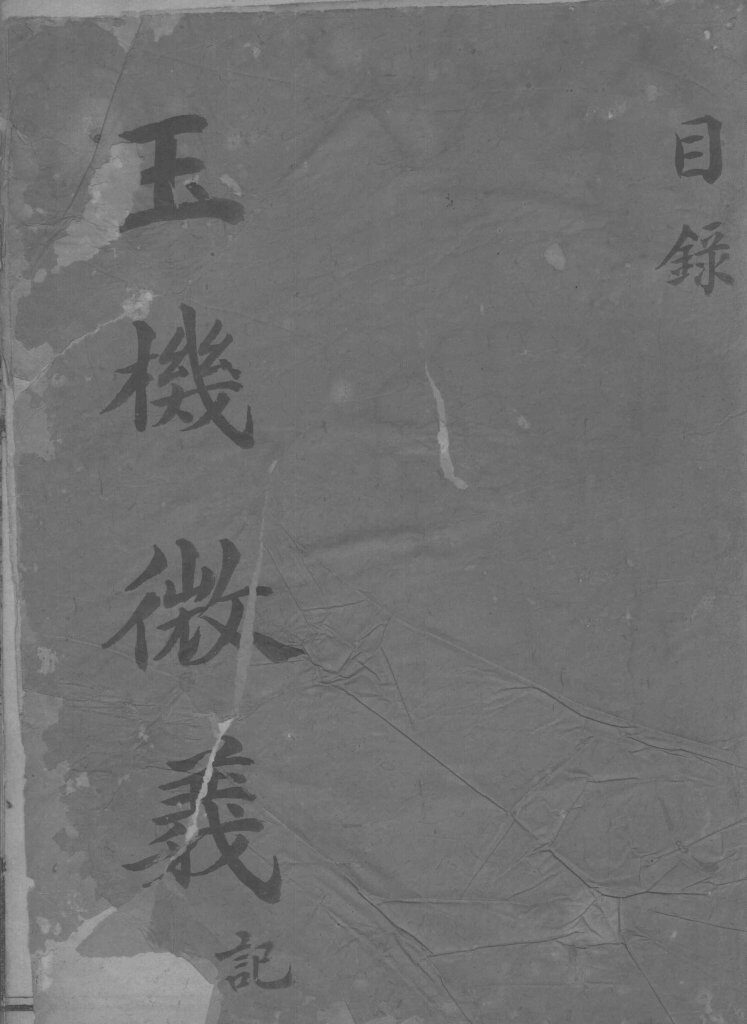 目錄
玉機微義
記